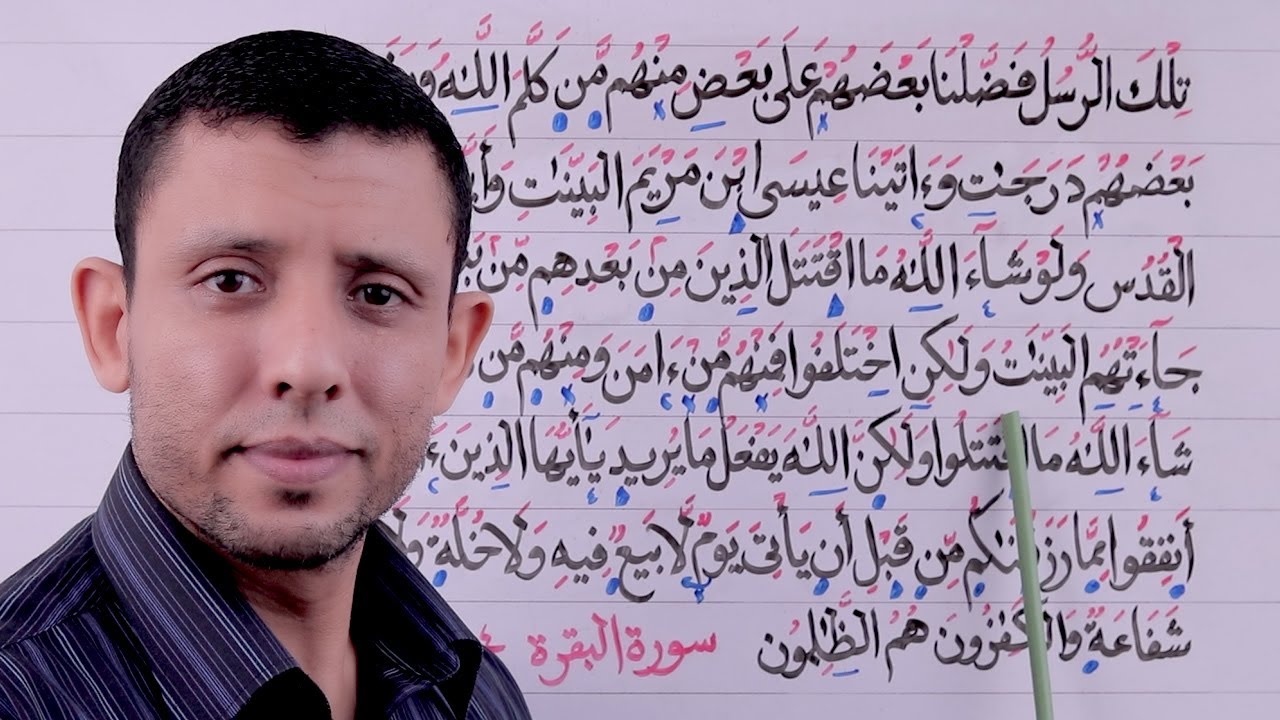 تِلْكَ الرُّسُلُ فَضَّلْنَا بَعْضَهُمْ عَلَىٰ بَعْضٍ مِنْهُم مَّن كَلَّمَ اللَّهُ
بَعْضَهُمْ دَرَجَٰتٍ وَءَاتَيْنَا عِيسَى ابْنَ مَرْيَمَ الْبَيِّنَٰتِ
الْقُدُسِ وَلَوْ شَآءَ اللَّهُ مَا اقْتَتَلَ الَّذِينَ مِنۢ بَعْدِهِم مِّنۢ
جَآءَتْهُمُ الْبَيِّنَٰتُ وَلَٰكِنِ اخْتَلَفُوا فَمِنْهُم مَّنْ ءَامَنَ وَمِنْهُم مَّن
شَآءَ اللَّهُ مَا اقْتَتَلُوا وَلَٰكِنَّ اللَّهَ يَفْعَلُ مَا يُرِيدُ يَٰٓأَيُّهَا الَّذِينَ
أَنفِقُوا مِمَّا رَزَقْنَٰكُم مِّن قَبْلِ أَن يَأْتِىَ يَوْمٌ لَّا بَيْعٌ فِيهِ وَلَا خُلَّةٌ
شَفَٰعَةٌ وَالْكَٰفِرُونَ هُمُ الظَّٰلِمُونَ سورة البقرة